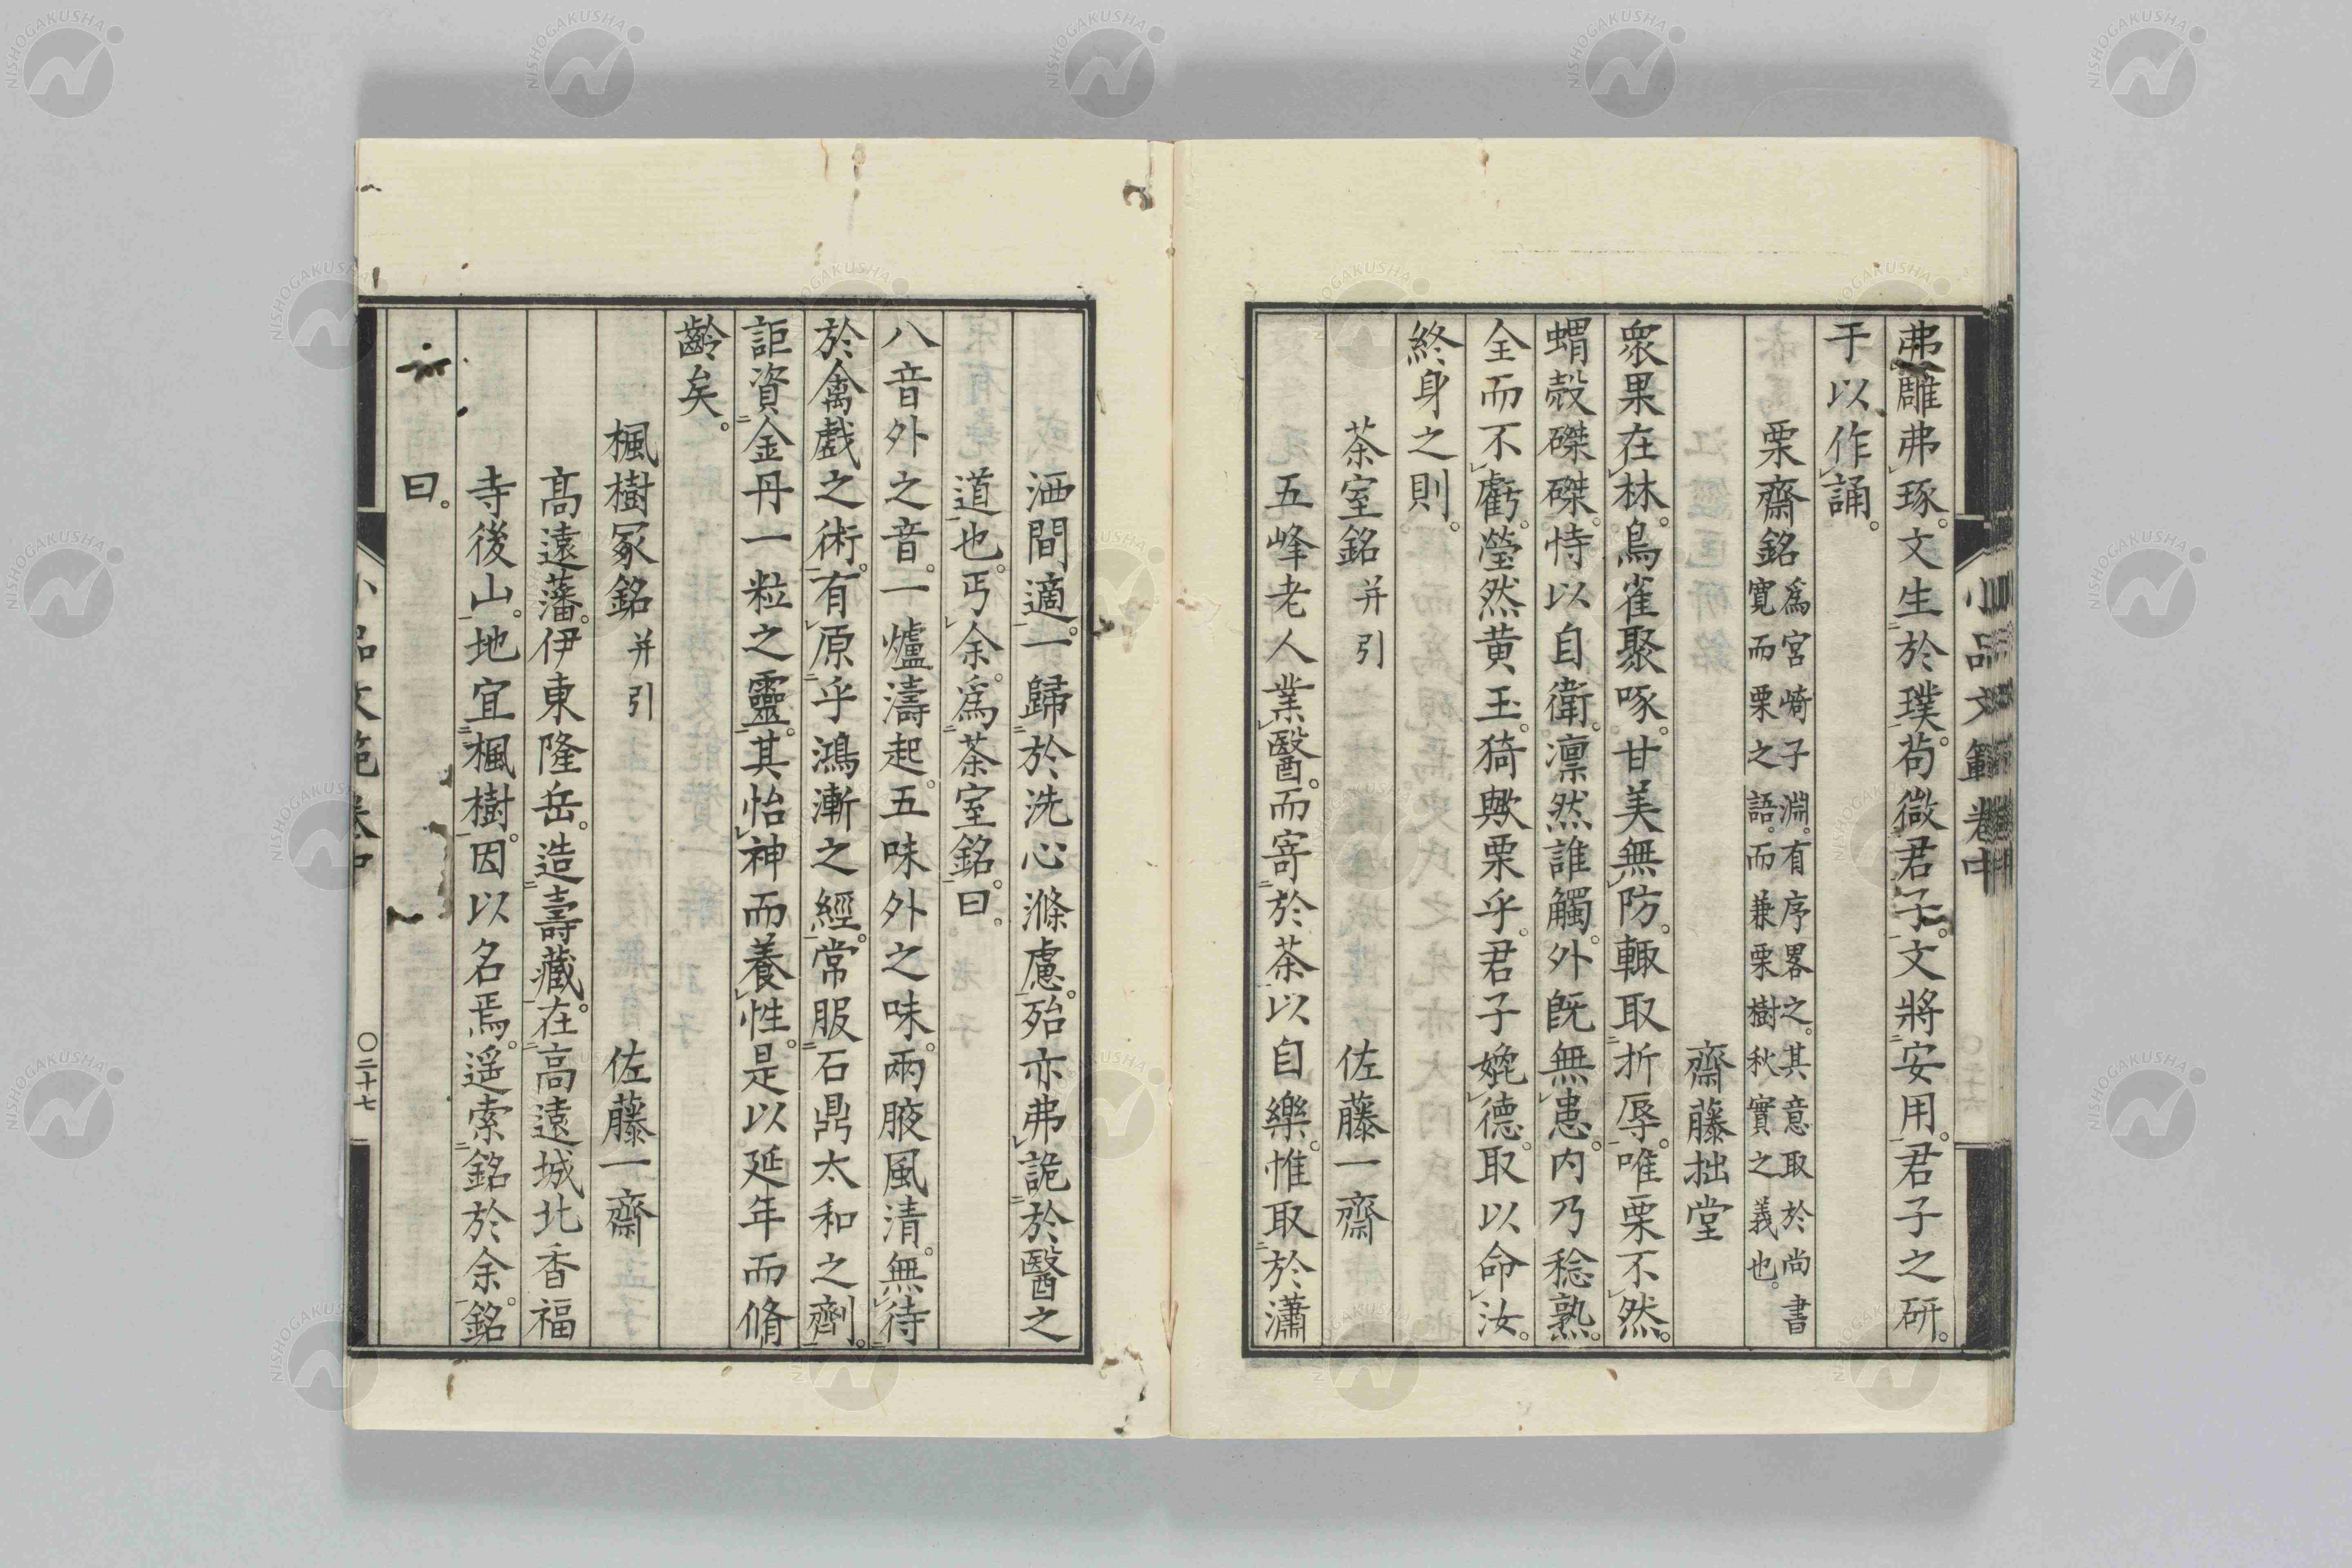 弗雕弗琢。文生於璞。茍微君子。文將安用。君子之研。
于以作誦。
栗齋銘 爲宮崎子淵。有序畧之。其意取於尚書
寛而栗之語。而兼栗樹秋實之義也。
齋藤拙堂
衆果在林。鳥雀聚啄。甘美無防。輙取折辱。唯栗不然。
蝟殻磔磔。恃以自衛。凛然誰觸。外既無患。内乃稔熟。
全而不虧。瑩然黄玉。猗歟栗乎。君子媲德。取以命汝。
終身之則。
茶室銘 并引 佐藤一齋
五峰老人業醫。而寄於茶以自樂。惟取於瀟
洒間適。一歸於洗心滌慮。殆亦弗詭於醫之
道也。丐余。爲茶室銘。曰。
八音外之音。一爐濤起。五味外之味。兩腋風清。無待
於禽戲之術。有原乎鴻漸之經。常服石鼎太和之劑。
詎資金丹一粒之靈。其怡神而養性。是以延年而脩
齡矣。
楓樹冢銘 并引 佐藤一齋
高遠藩。伊東隆岳。造壽藏。在高遠城北香福
寺後山。地宜楓樹。因以名焉。遥索銘於余。銘
曰。
小品文範 卷中 〇二十七
小品文範卷中
NISHOGAKUSHA